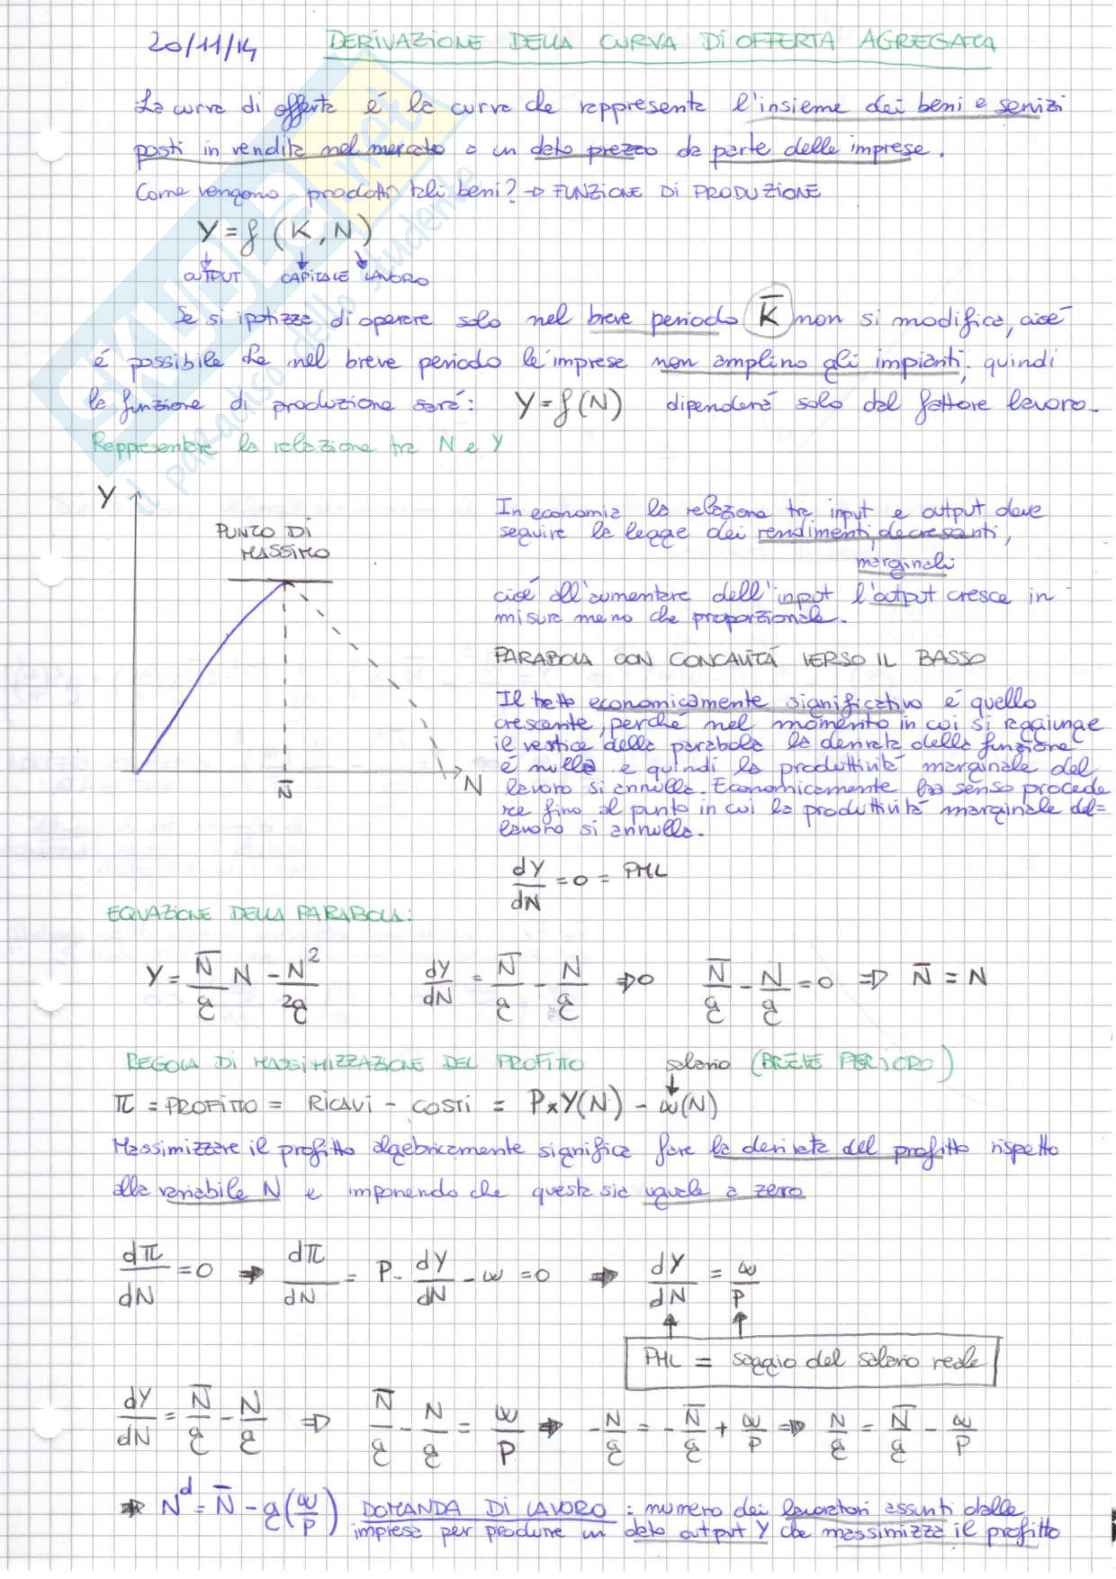 20/11/14 DERIVAZIONE DELLA CURVA DI OFFERTA AGREGATA
La curva di offerta é la curva che rappresenta l'insieme dei beni e servizi
posti in vendita nel mercato a un dato prezzo da parte delle imprese.
Come vengono prodotti tali beni? → FUNZIONE DI PRODUZIONE
Y = f (K, N)
OUTPUT CAPITALE LAVORO
Se si ipotizza di operare solo nel breve periodo K̅ non si modifica, cioé
é possibile che nel breve periodo le imprese non amplino gli impianti, quindi
la funzione di produzione sará: Y = f(N) dipenderá solo dal fattore lavoro.
Rappresentare la relazione tra N e Y
Y
PUNTO DI
MASSIMO
N̅
N
In economia la relazione tra input e output deve
seguire la legge dei rendimenti decrescenti,
marginali
cioé all'aumentare dell'input l'output cresce in
misura meno che proporzionale.
PARABOLA CON CONCAVITÁ VERSO IL BASSO
Il tratto economicamente significativo é quello
crescente, perché nel momento in cui si raggiunge
il vertice della parabola la derivata della funzione
é nulla e quindi la produttivitá marginale del
lavoro si annulla. Economicamente ha senso procede
re fino al punto in cui la produttivitá marginale del=
lavoro si annulla.
dY/dN = 0 = PML
EQUAZIONE DELLA PARABOLA:
Y = N̅/g N - N²/2g dY/dN = N̅/g - N/g ⇒ N̅/g - N/g = 0 ⇒ N̅ = N
REGOLA DI MASSIMIZZAZIONE DEL PROFITTO salario (BREVE PERIODO)
π = PROFITTO = RICAVI - COSTI = P×Y(N) - w(N)
Massimizzare il profitto algebricamente significa fare la derivata del profitto rispetto
alla variabile N e imponendo che questa sia uguale a zero
dπ/dN = 0 ⇒ dπ/dN = P · dY/dN - w = 0 ⇒ dY/dN = w/P
PML = saggio del salario reale
dY/dN = N̅/g - N/g ⇒ N̅/g - N/g = w/P ⇒ -N/g = -N̅/g + w/P ⇒ N/g = N̅/g - w/P
⇒ Nᵈ = N̅ - g(w/P) DOMANDA DI LAVORO : numero dei lavoratori assunti dalle
imprese per produrre un dato output Y che massimizza il profitto